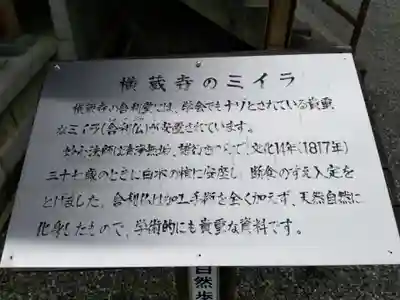 横蔵寺のミイラ
横蔵寺の舎利堂には、学会でもナゾとされている貴重
なミイラ(舎利仏)が安置されています。
妙心法師は清浄無垢、諸行をつんで、文化14年(1817年)
三十七歳のときに白木の棺に安座し、断食のすえ入定を
とげました。舎利仏は加工手術を全く加えず、天然自然に
化身したもので、学術的にも貴重な資料です。
自然歩